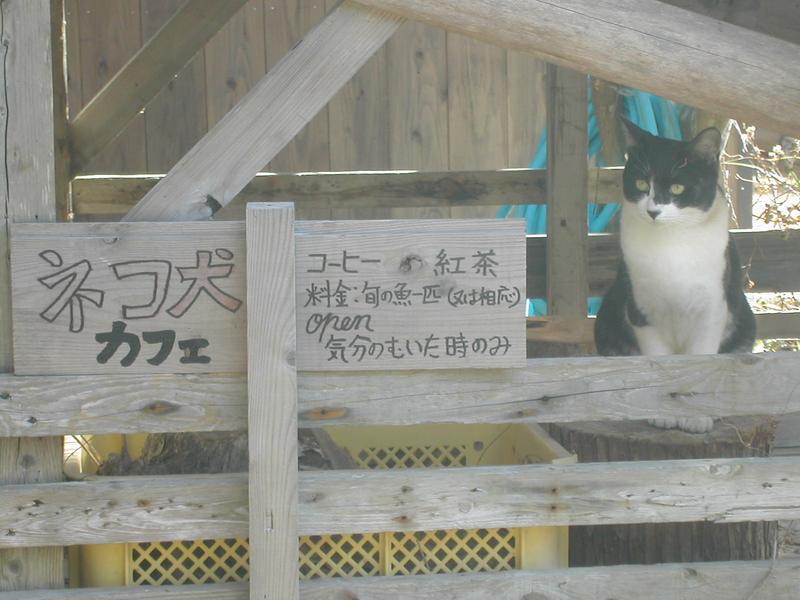 ネコ犬
カフェ
コーヒー 紅茶
料金:旬の魚一匹(又は相応)
open
気分のむいた時のみ